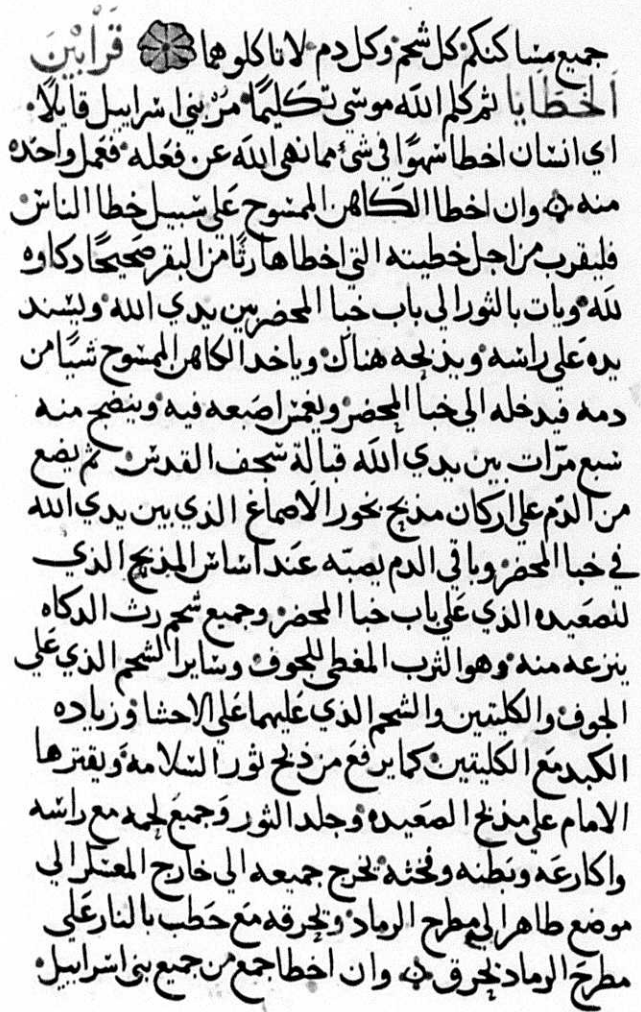 جميع مساكنكم كل شحم وكل دم لا تاكلوهما قرابين
الخطايا ثم كلم الله موسى تكليمًا مرْ بني اسراييل قايلًا
اي انسان اخطا سهوًا في شي مما نهى الله عن فعله فعمل واحده
منه وان اخطا الكاهن الممسوح على سبيل خطا الناس
فليقرب من اجل خطيته التي اخطاها رتًا من البقر صحيحًا دكاوه
لله ويات بالثور الي باب خبا المحضر بين يدي الله ويسند
يده علي راسه ويذبحه هناك وياخد الكاهن الممسوح شيًا من
دمه فيدخله الي خبا المحضر ويغمس اصبعه فيه وينضح منه
سبع مرّات بين يدي الله قبالة سجف القدس ثم يضع
من الدم علي اركان مذبح بخور الاصماغ الذي بين يدي الله
في خبا المحضر وباقي الدم يصبّه عند اساس المذبح الذي
للصعيده الذي علي باب خبا المحضر وجميع شحم رث الدكاه
ينزعه منه وهو الثرب المغطي للجوف وساير الشحم الذي علي
الجوف والكليتين والشحم الذي عليهما علي الاحشا وزياده
الكبد مع الكليتين كما يرفع من ذبح ثور السلامه ويقترها
الامام علي مذبح الصعيده وجلد الثور وجميع لحمه مع راسه
واكارعه وبطنه وفحثه يخرج جميعه الي خارج المعسكر الي
موضع طاهر الي مطرح الرماد ويحرقه مع حطب بالنار علي
مطرح الرماد يحرق وان اخطا جمع من جميع بني اسراييل